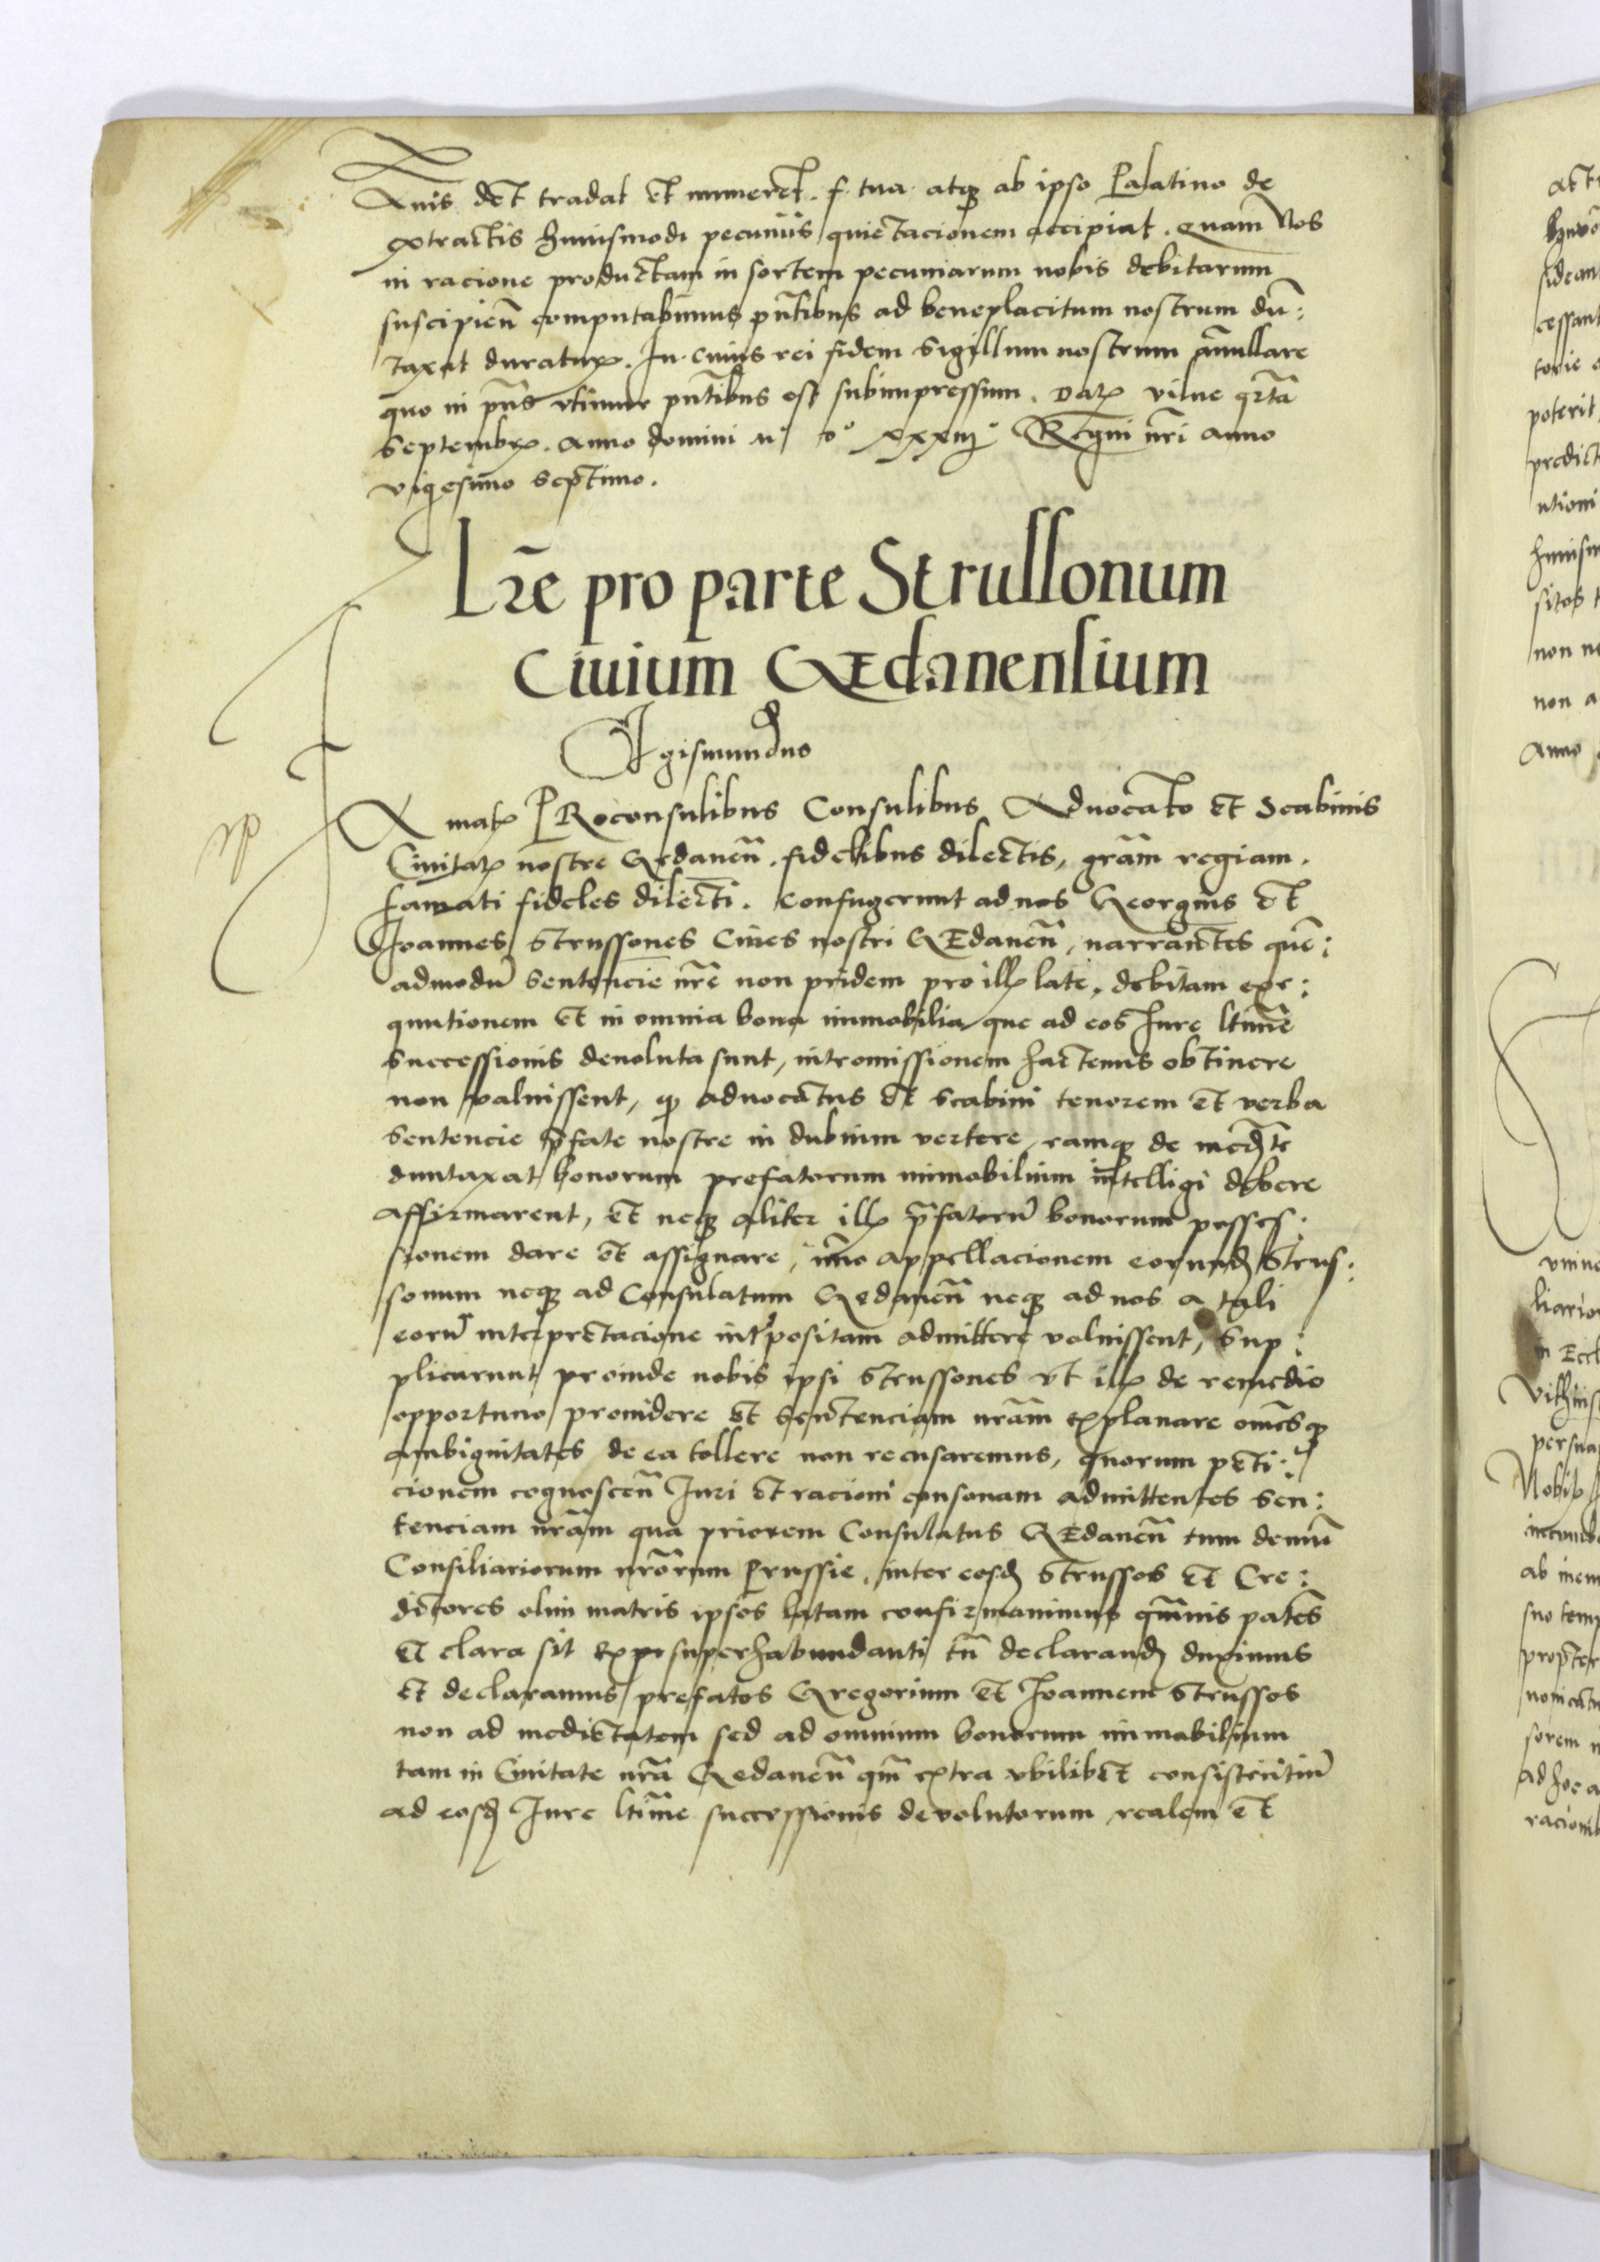 Quis det tradat et numeret. f. tua atqȝ ab ipso Palatino de
extractis huiusmodi pecuniis quietacionem accipiat. Quam Nos
in racione productam in sortem pecuniarum nobis debitarum
suscipieñ computabimus p̃ntibus ad beneplacitum nostrum dũ:
taxat duratuꝝ. In cuius rei fidem Sigillum nostrum ãnullare
quo in p̃ns vtimur p̃ntibus est subimpressum. Daꝝ vilne qrta
Septembꝝ. Anno domini Mº Dº xxxiijº Regni nr̃i anno
vigesimo Septimo.
Lr̃e pro parte Strussonum
Ciuium Gedanensium
Sigismundus
Famaꝝ PRoconsulibus Consulibus Aduocato et Scabinis
Ciuitaꝝ nostre Gedaneñ. fidelibus dilectis, grãm regiam.
Famati fideles dilecti. Confugerunt ad nos Georgius et
Joannes Strussones Ciues nostri GEdaneñ, narrantes quẽ:
admodũ Sentencie nr̃e non pridem pro illꝝ late, debitam exe:
qunutionem et in omnia bona immobilia que ad eos Jure ltime
successionis deuoluta sunt, intromissionem hactenus obtinere
non valuissent, qȝ aduocatus et Scabini tenorem et verba
Sentencie p̃fate nostre in dubium vertere, eamqȝ de med̃te
duntaxat bonorum prefatorum immobilium intelligi debere
affirmarent, et neqȝ aliter illꝝ p̃fatorũ bonorum posses:
sionem dare et assignare, im̃o appellacionem eorundȝ Strus:
sonum neqȝ ad Consulatum Gedaneñ neqȝ ad nos a tali
eorũ interpretacione int̃positam admittere voluissent, Sup:
plicarunt proinde nobis ipsi Strussones vt illꝝ de remedio
opportuno prouidere et Sentenciam nr̃am explanare omẽsqȝ
ambiguitates de ea tollere non recusaremus, quorum peti:
cionem cognosceñ Juri et racioni consonam admittentes Sen:
tenciam nr̃am qua priorem Consulatus GEdaneñ tum demũ
Consiliariorum nr̃orum Prussie, inter eosdȝ Strussos et Cre:
ditores olim matris ipsos latam confirmauimus qm̃uis patẽs
et clara sit ex superhabundanti tñ declarandȝ duximus
et declaramus prefatos Gregorium et Joannem Strussos
non ad medietatem sed ad omnium bonorum immobilium
tam in Ciuitate nr̃a Gedaneñ qm̃ extra vbilibet consistentiũ
ad eosdȝ Jure ltime successionis deuolutorum realem et